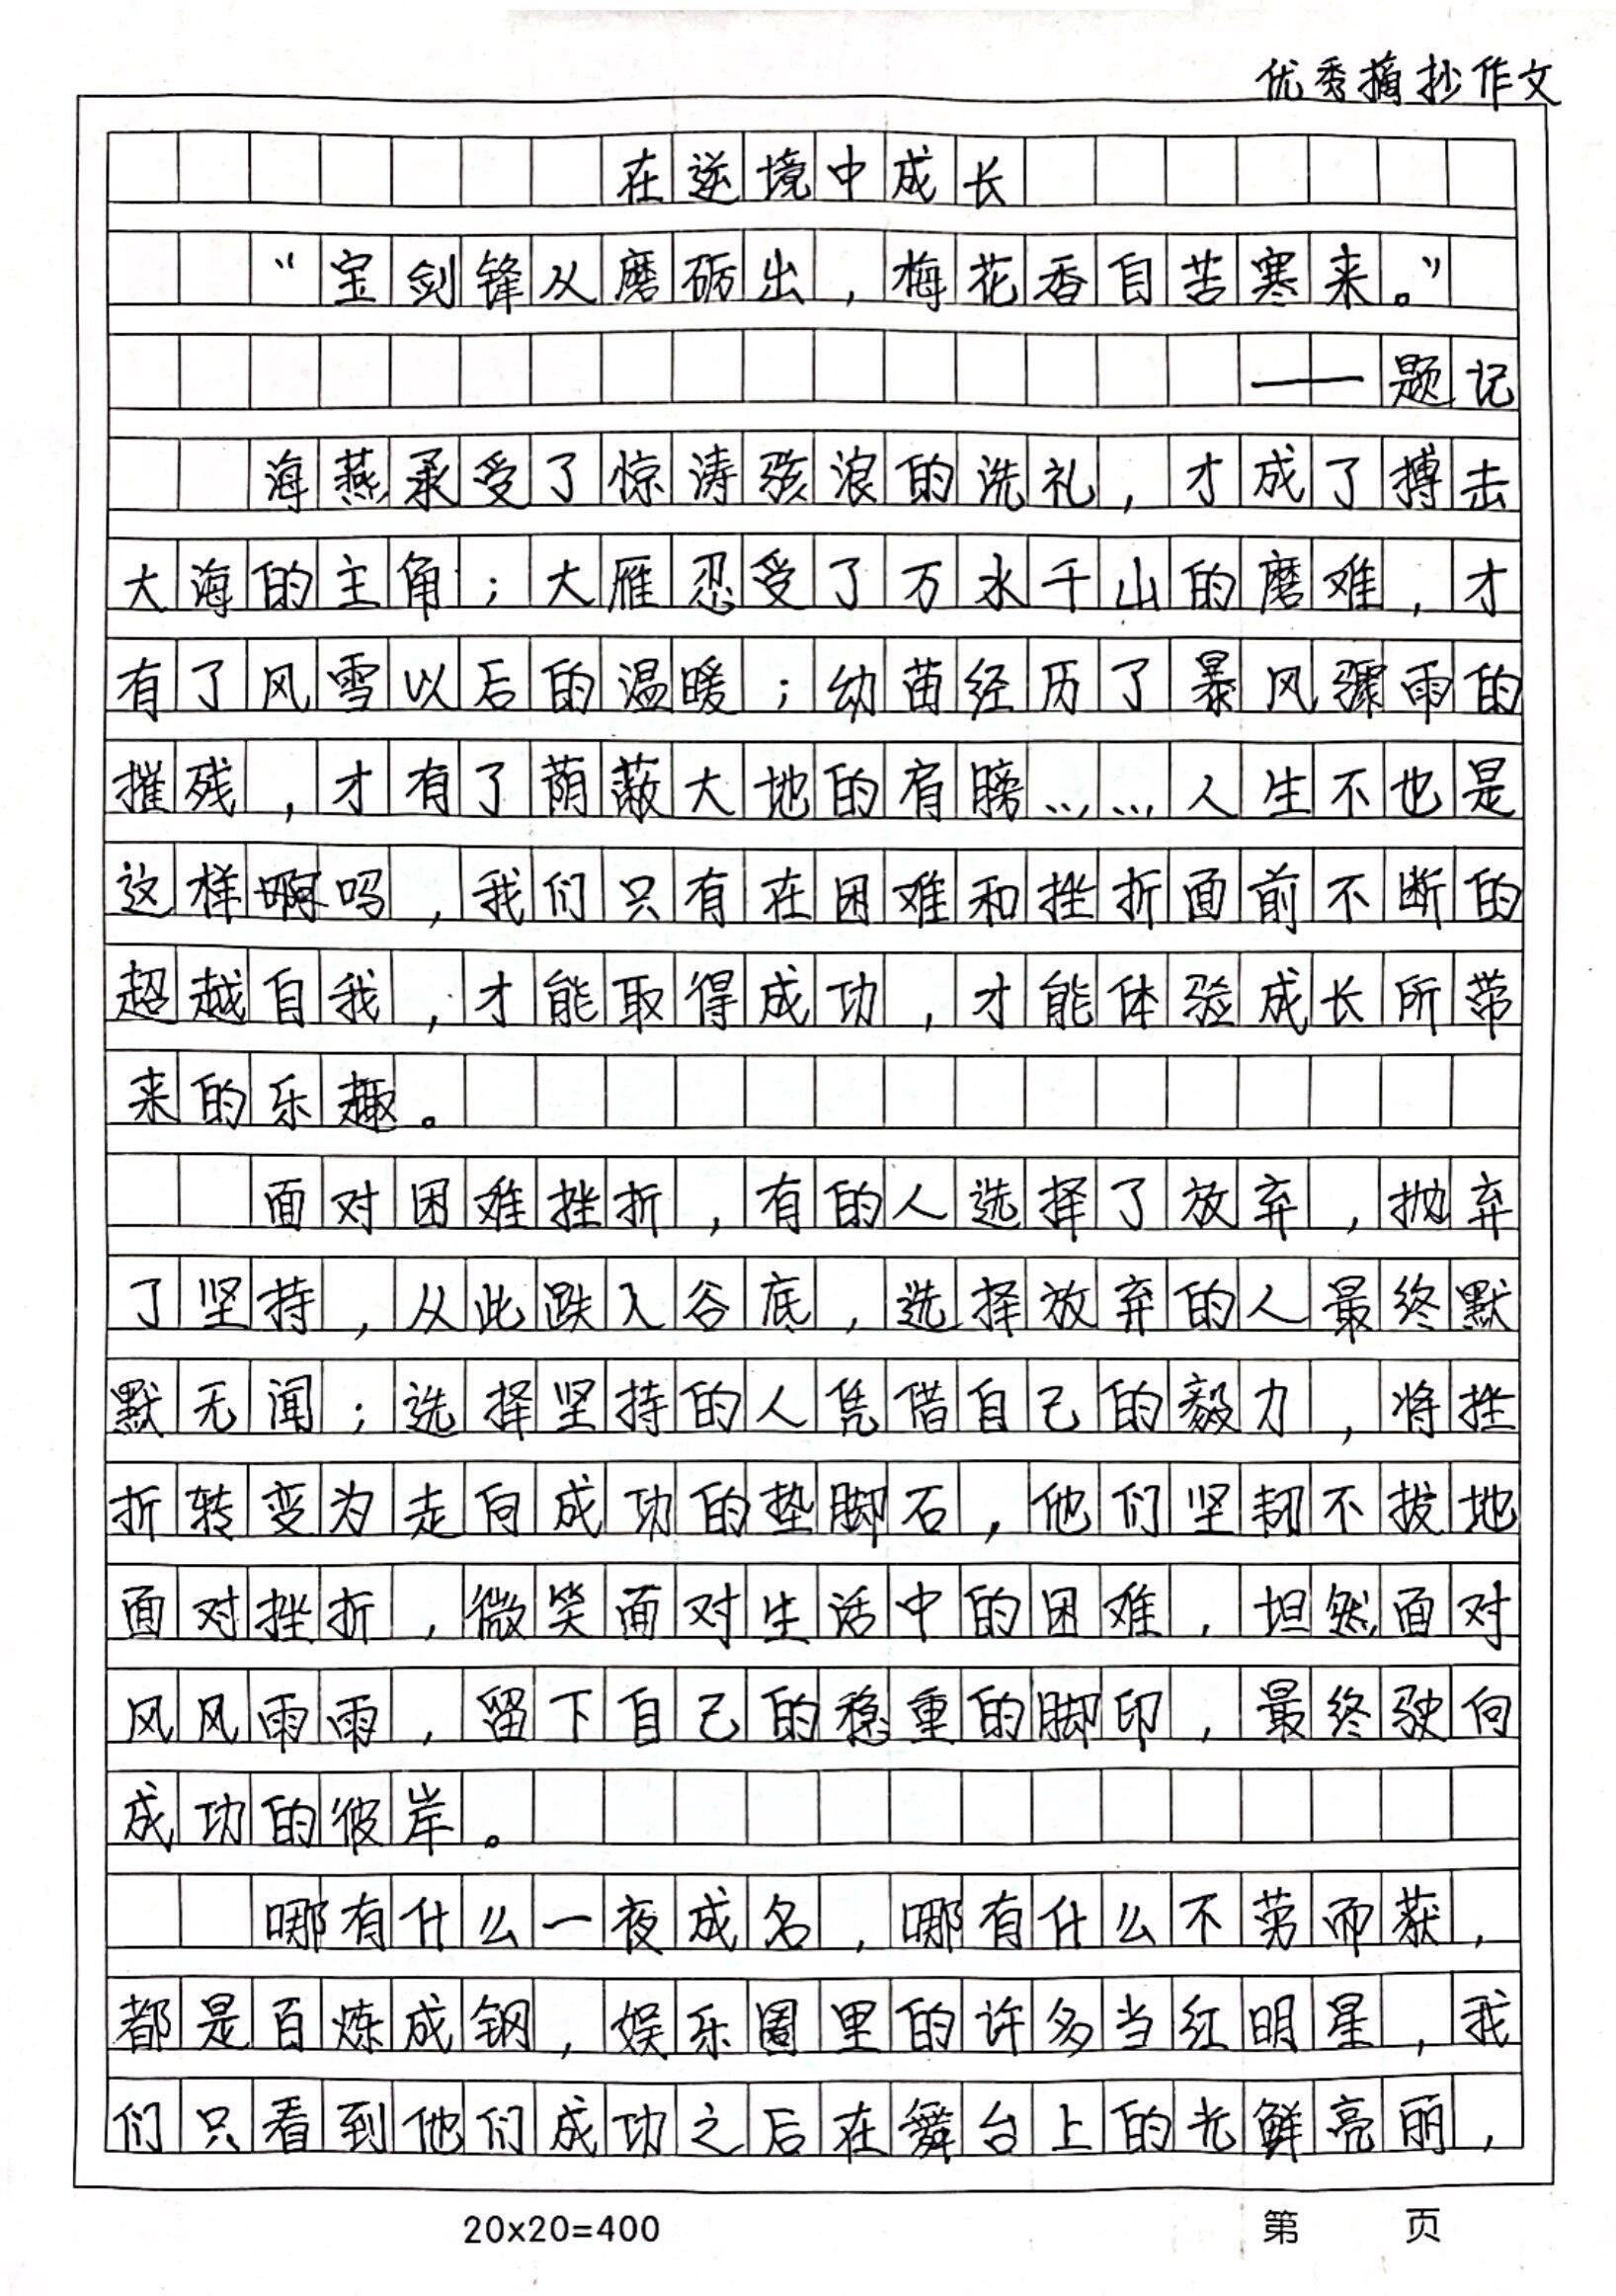 优秀摘抄作文
在逆境中成长
“宝剑锋从磨砺出，梅花香自苦寒来。”
——题记
海燕承受了惊涛骇浪的洗礼，才成了搏击
大海的主角；大雁忍受了万水千山的磨难，才
有了风雪以后的温暖；幼苗经历了暴风骤雨的
摧残，才有了荫蔽大地的肩膀……人生不也是
这样啊吗，我们只有在困难和挫折面前不断的
超越自我，才能取得成功，才能体验成长所带
来的乐趣。
面对困难挫折，有的人选择了放弃，抛弃
了坚持，从此跌入谷底，选择放弃的人最终默
默无闻；选择坚持的人凭借自己的毅力，将挫
折转变为走向成功的垫脚石，他们坚韧不拔地
面对挫折，微笑面对生活中的困难，坦然面对
风风雨雨，留下自己的稳重的脚印，最终驶向
成功的彼岸。
哪有什么一夜成名，哪有什么不劳而获，
都是百炼成钢，娱乐圈里的许多当红明星，我
们只看到他们成功之后在舞台上的光鲜亮丽，
20×20=400 第 页